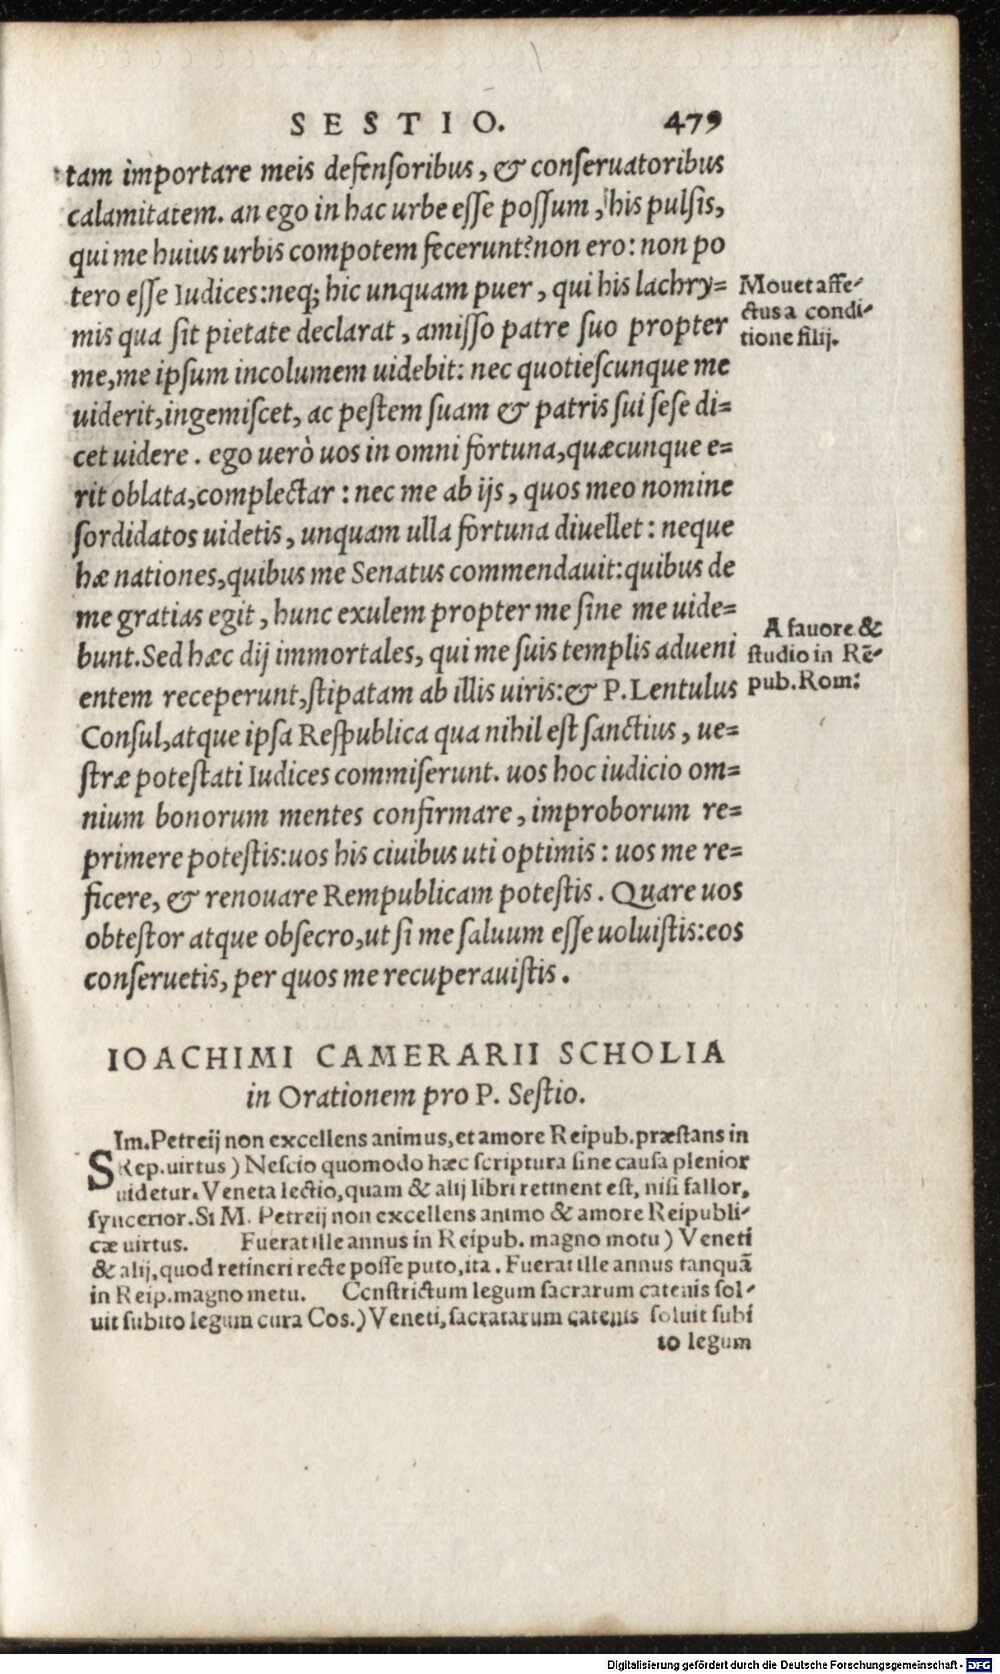 SESTIO. 479
tam importare meis defensoribus, & conseruatoribus
calamitatem. an ego in hac urbe esse possum, his pulsis,
qui me huius urbis compotem fecerunt? non ero: non po
tero esse Iudices: neq; hic unquam puer, qui his lachry=
mis qua sit pietate declarat, amisso patre suo propter
me, me ipsum incolumem uidebit: nec quotiescunque me
uiderit, ingemiscet, ac pestem suam & patris sui sese di=
cet uidere. ego uerò uos in omni fortuna, quæcunque e=
rit oblata, complectar: nec me ab ijs, quos meo nomine
sordidatos uidetis, unquam ulla fortuna diuellet: neque
hæ nationes, quibus me Senatus commendauit: quibus de
me gratias egit, hunc exulem propter me sine me uide=
bunt. Sed hæc dij immortales, qui me suis templis adueni
entem receperunt, stipatam ab illis uiris: & P. Lentulus
Consul, atque ipsa Respublica qua nihil est sanctius, ue=
stræ potestati Iudices commiserunt. uos hoc iudicio om=
nium bonorum mentes confirmare, improborum re=
primere potestis: uos his ciuibus uti optimis: uos me re=
ficere, & renouare Rempublicam potestis. Quare uos
obtestor atque obsecro, ut si me saluum esse uoluistis: eos
conseruetis, per quos me recuperauistis.
Mouet affe-
ctus a condi-
tione filij.
A fauore &
studio in Rē-
pub. Rom:
IOACHIMI CAMERARII SCHOLIA
in Orationem pro P. Sestio.
SIm. Petreij non excellens animus, et amore Reipub. præstans in
Rep. uirtus) Nescio quomodo hæc scriptura sine causa plenior
uidetur. Veneta lectio, quam & alij libri retinent est, nisi fallor,
syncerior. Si M. Petreij non excellens animo & amore Reipubli-
cæ uirtus. Fuerat ille annus in Reipub. magno motu) Veneti
& alij, quod retineri recte posse puto, ita. Fuerat ille annus tanquā
in Reip. magno metu. Constrictum legum sacrarum catenis sol-
uit subito legum cura Cos.) Veneti, sacratarum catenis soluit subi
to legum
Digitalisierung gefördert durch die Deutsche Forschungsgemeinschaft - DFG